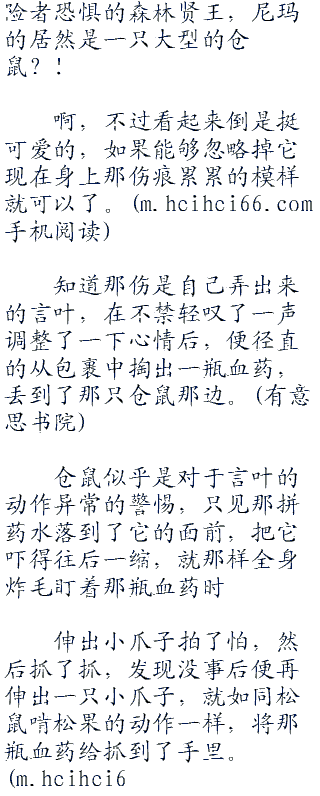 险者恐惧的森林贤王，尼玛
的居然是一只大型的仓
鼠？！
啊，不过看起来倒是挺
可爱的，如果能够忽略掉它
现在身上那伤痕累累的模样
就可以了。(m.hcihci66.com
手机阅读)
知道那伤是自己弄出来
的言叶，在不禁轻叹了一声
调整了一下心情后，便径直
的从包裹中掏出一瓶血药，
丢到了那只仓鼠那边。(有意
思书院)
仓鼠似乎是对于言叶的
动作异常的警惕，只见那拼
药水落到了它的面前，把它
吓得往后一缩，就那样全身
炸毛盯着那瓶血药时
伸出小爪子拍了怕，然
后抓了抓，发现没事后便再
伸出一只小爪子，就如同松
鼠啃松果的动作一样，将那
瓶血药给抓到了手里。
(m.hcihci6